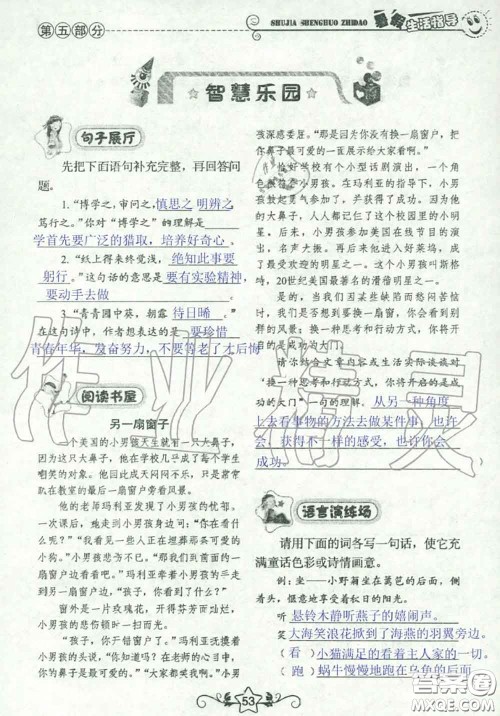 第五部分
SHUJIA SHENGHUO ZHIDAO
暑假生活指导
智慧乐园
句子展厅
先把下面语句补充完整，再回答问
题。
1. “博学之，审问之，慎思之 明辨之
笃行之。”你对“博学之”的理解是
学首先要广泛的猎取，培养好奇心。
2. “纸上得来终觉浅，绝知此事要
躬行。”这句话的意思是要有实验精神，
要动手去做。
3. “青青园中葵，朝露 待日晞。”
在这句诗中，作者想表达的是要珍惜
青春年华，发奋努力，不要等老了才后悔
阅读书屋
另一扇窗子
一个美国的小男孩天生就有一只大
鼻子，因此，他来到学校后便成了同学们
嘲笑的对象。此后他成天闷闷不乐，只是常常
趴在教室的一扇窗户旁看风景。
他的老师玛利亚发现了小男孩的忧郁。
一次课后，她走到小男孩身边问：“你在看什
么呢？”“我看见一些人正在埋葬那条可爱的小
狗。”小男孩悲伤不已。“那我们到前面的一
扇窗户边看看吧。”玛利亚牵着小男孩走到另
一扇窗户边，“孩子，你看到了什么？”
窗外是一片玫瑰花，花儿开得芬芳灿烂，小
男孩的悲伤顿时一扫而光。
“孩子，你开错了窗户。”玛利亚抚摸着他
的头说，“你知道吗？在老师的心目中，
你的鼻子是最可爱的。”“大家都嘲笑我！”小男
孩深感委屈。“那是因为你没有换一扇窗户，把
你鼻子最可爱的一面展示给大家看。”
恰好学校有个小型话剧演出，一个角
色很适合小男孩。在玛利亚的指导下，小男
孩鼓起勇气参加了，并获得了成功。因为他
的大鼻子，他成了这个校园里的小明
星。后来，小男孩参加美国在线节目的演
出，大鼻子也声名大噪。再后来他进入好莱坞，成
了最受欢迎的明星之一。这个小男孩叫斯格
特，20世纪美国最著名的滑稽明星之一。
是的，当我们因某些缺陷而悠闷苦恼
时，也要像小男孩一样，换一扇窗，你会看到别
样的风景；换一种思考和行动方式，你将开
启的是成功的大门！
请你结合文章内容或生活实际谈谈对
“换一种思考和行动方式，你将开启的是成功
的大门”一句的理解。从另一种角度
上去看事物的方法去做某件事，也许
会获得不一样的感受，也许你会
成功。
语言演练场
请用下面的词各写一句话，使它充
满童话色彩或诗情画意。
例：坐——小野菊坐在篱笆的后面，侧
着头，惬意地享受着秋日的阳光。
听 悬铃木静听燕子的嬉闹声。
笑 大海笑浪花掀到了海燕的羽翼旁边。
（看） 小猫满足的看着主人家的一切
（跑） 蜗牛慢慢地跑在乌龟的后面
53
作业精灵
答案圈
MXQE.COM